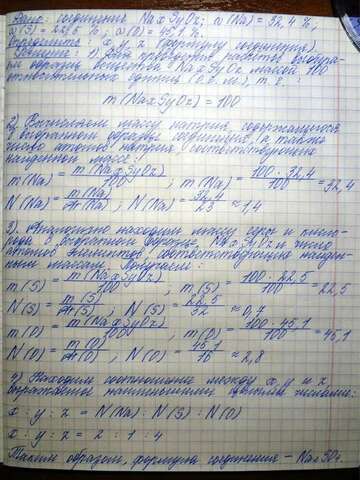 Дано: соединение NaxSyOz; ω(Na) = 32,4 %,
ω(S) = 22,5 %; ω(O) = 45,1 %.
Определить: x, y, z (формулу соединения).
Решение: 1) Для проведения расчёта выбира-
ем образец вещества (NaxSyOz) массой 100
(а. е. м.), т. е.:
m(NaxSyOz) = 100
2) Вычисляем массу натрия, содержащегося
в выбранном образце соединения, а также
число атомов натрия, соответствующих
найденной массе:
m(Na) = m(NaxSyOz)/100 ; m(Na) = 100 · 32,4/100 = 32,4
N(Na) = m(Na)/Ar(Na) ; N(Na) = 32,4/23 ≈ 1,4
3) Аналогично находим массу серы и кисло-
рода в выбранном образце NaxSyOz и число
атомов элементов, соответствующую найден-
ным массам. Получаем:
m(S) = m(NaxSyOz)/100 ; m(S) = 100 · 22,5/100 = 22,5
N(S) = m(S)/Ar(S) ; N(S) = 22,5/32 ≈ 0,7
m(O) = m(NaxSyOz)/100 ; m(O) = 100 · 45,1/100 = 45,1
N(O) = m(O)/Ar(O) , N(O) = 45,1/16 ≈ 2,8
4) Находим соотношение между x, y и z,
выраженное наименьшими целыми числами:
x : y : z = N(Na) : N(S) : N(O)
x : y : z = 2 : 1 : 4
Таким образом, формула соединения – Na2SO4